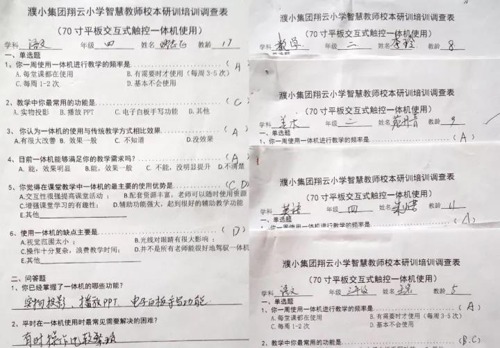 濮小集团翔云小学智慧教师校本研训培训调查表
（70寸平板交互式触控一体机使用）
学科 语文 年级 四 姓名 教龄 17
一、单选题
1、你一周使用一体机进行教学的频率是 （A）
A.每堂课都在使用 B.有需要时才使用（每周3-5次）
C.每周1-2次 D.基本不会使用
2、教学中你最常用的功能是 （C）
A.实物投影 B.播放PPT C.电子白板手写功能 D.其他
3、你认为一体机的使用与传统教学方式相比效果 （A）
A.有很大改善 B.效果一般 C.不知道 D.没效果
4、目前一体机能够满足你的教学需求吗？ （A）
A.能，效果明显 B.能，效果一般 C.不能，没明显提升 D.不清楚
5、你觉得在课堂教学中一体机的最主要的使用优势是 （C D）
A.交互性强提高课堂活动 B.配套资源丰富，老师可以随时使用资源
C.增强课堂学习的有趣性； D.辅助功能强大，起到很好的辅助教学功能
E.其他
6、使用一体机的缺点主要是 （D）
A.视觉范围太小； B.光线对眼睛有很大影响；
C.操作十分复杂，浪费教学时间； D.并不是所有老师能很好地驾驭一体机
E.其他
二、问答题
1、你已经掌握了一体机的哪些功能？
实物投影、播放PPT、电子白板书写功能
2、平时在一体机使用时最常见需要解决的困难？
有时操作比较繁琐
濮小集团翔云小学智慧教师校本研训培训调查表
（70寸平板交互式触控一体机使用）
学科 数学 年级 二 姓名 教龄 8
一、单选题
1、你一周使用一体机进行教学的频率是 （A）
濮小集团翔云小学智慧教师校本研训培训调查表
（70寸平板交互式触控一体机使用）
学科 美术 年级 姓名 教龄 9
一、单选题
1、你一周使用一体机进行教学的频率是 （A）
濮小集团翔云小学智慧教师校本研训培训调查表
（70寸平板交互式触控一体机使用）
学科 英语 年级 四 姓名 教龄 11
一、单选题
1、你一周使用一体机进行教学的频率是 （A）
濮小集团翔云小学智慧教师校本研训培训调查表
（70寸平板交互式触控一体机使用）
学科 语文 年级 姓名 教龄 5
一、单选题
1、你一周使用一体机进行教学的频率是 （A）
A.每堂课都在使用 B.有需要时才使用（每周3-5次）
C.每周1-2次 D.基本不会使用
2、教学中你最常用的功能是 （B.C）